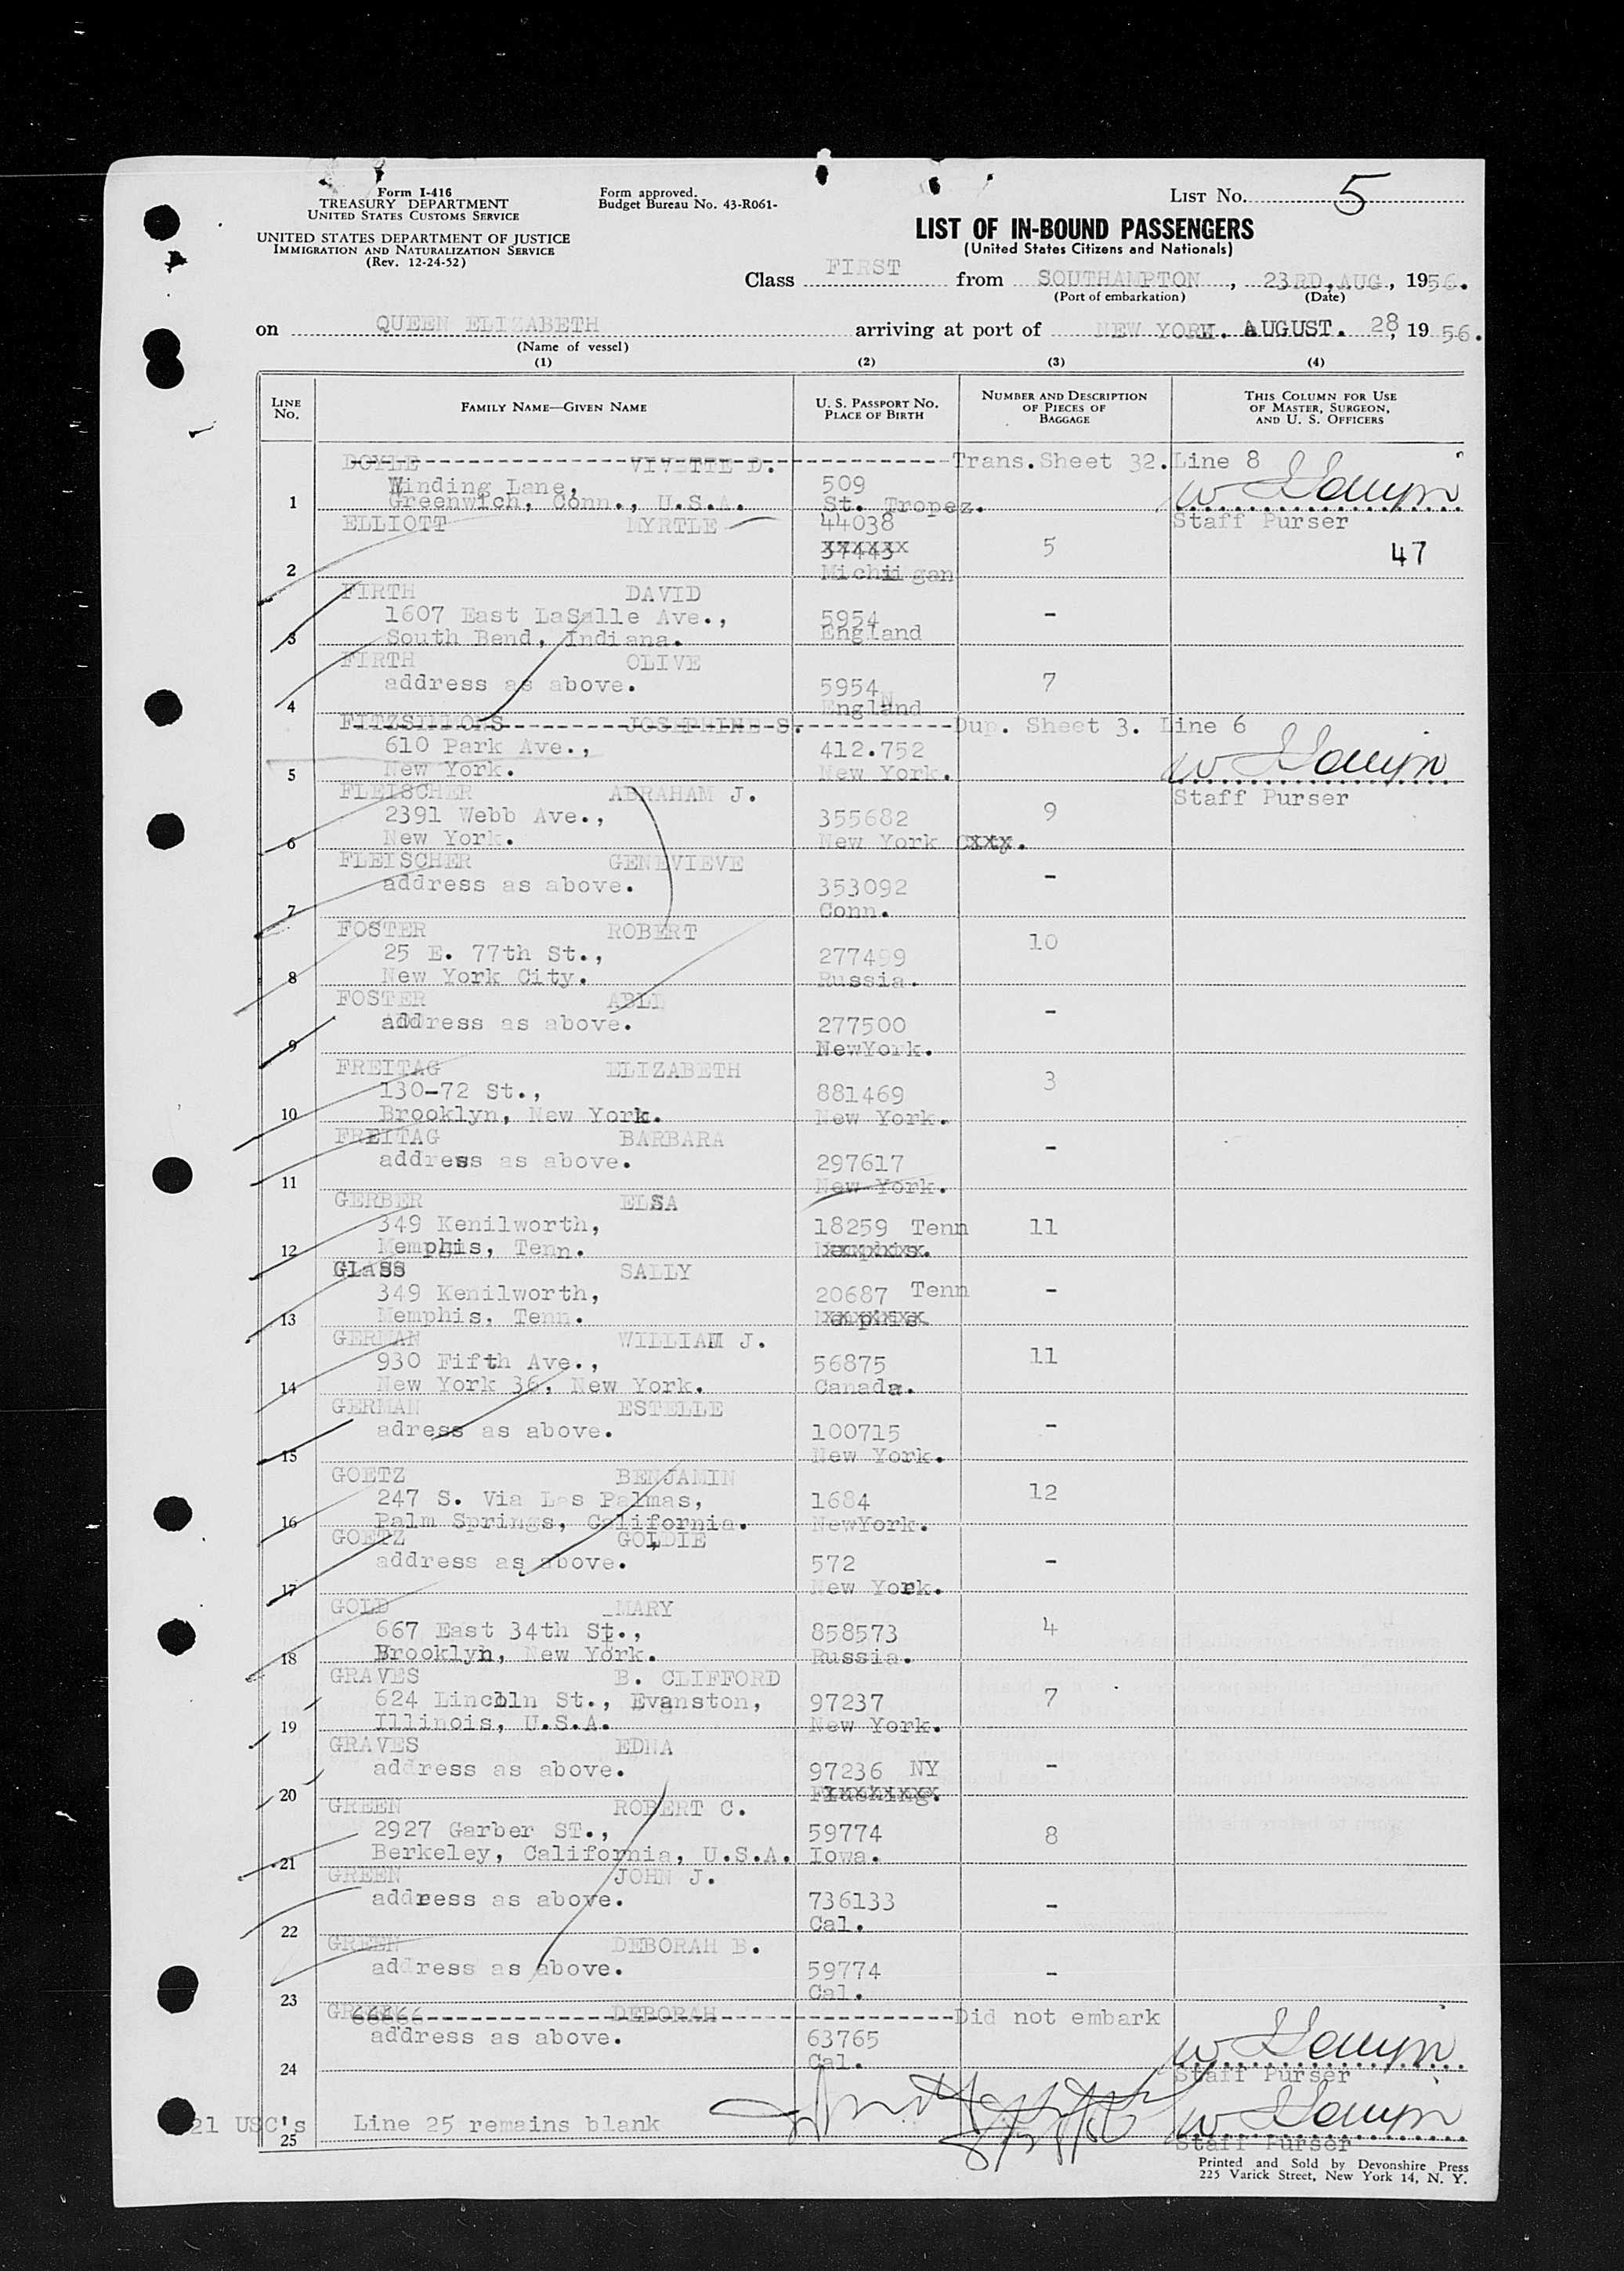 Form I-416
TREASURY DEPARTMENT
UNITED STATES CUSTOMS SERVICE
UNITED STATES DEPARTMENT OF JUSTICE
IMMIGRATION AND NATURALIZATION SERVICE
(Rev. 12-24-52)
Form approved.
Budget Bureau No. 43-R061-
LIST No. 5
LIST OF IN-BOUND PASSENGERS
(United States Citizens and Nationals)
Class FIRST from SOUTHAMPTON, 23RD, AUG, 1956.
(Port of embarkation) (Date)
on QUEEN ELIZABETH arriving at port of NEW YORK. AUGUST. 28, 1956.
(Name of vessel)
(1) (2) (3) (4)
LINE No. FAMILY NAME—GIVEN NAME U. S. PASSPORT No. PLACE OF BIRTH NUMBER AND DESCRIPTION OF PIECES OF BAGGAGE THIS COLUMN FOR USE OF MASTER, SURGEON, AND U. S. OFFICERS
DOYLE VIVETTE D. Trans. Sheet 32. Line 8
Winding Lane, 509
1 Greenwich, Conn., U.S.A. St. Tropez.
ELLIOTT MYRTLE 44038 Staff Purser
37443 5 47
2 Michigan
FIRTH DAVID
1607 East LaSalle Ave., 5954 -
3 South Bend, Indiana. England
FIRTH OLIVE
address as above. 5954 7
4 England
FITZSIMMONS JOSEPHINE S. Dup. Sheet 3. Line 6
610 Park Ave., 412.752
5 New York. New York.
FLEISCHER ABRAHAM J. Staff Purser
2391 Webb Ave., 355682 9
6 New York. New York Cxxx.
FLEISCHER GENEVIEVE
address as above. 353092 -
7 Conn.
FOSTER ROBERT
25 E. 77th St., 277499 10
8 New York City. Russia.
FOSTER
address as above. 277500 -
9 NewYork.
FREITAG ELIZABETH
130-72 St., 881469 3
10 Brooklyn, New York. New York.
FREITAG BARBARA
address as above. 297617 -
11 New York.
GERBER ELSA
349 Kenilworth, 18259 Tenn 11
12 Memphis, Tenn.
GLASS SALLY
349 Kenilworth, 20687 Tenn -
13 Memphis, Tenn.
GERMAN WILLIAM J.
930 Fifth Ave., 56875 11
14 New York 36, New York. Canada.
GERMAN ESTELLE
adress as above. 100715 -
15 New York.
GOETZ BENJAMIN
247 S. Via Las Palmas, 1684 12
16 Palm Springs, California. NewYork.
GOETZ GOLDIE
address as above. 572 -
17 New York.
GOLD MARY
667 East 34th St., 858573 4
18 Brooklyn, New York. Russia.
GRAVES B. CLIFFORD
624 Lincoln St., Evanston, 97237 7
19 Illinois, U.S.A. New York.
GRAVES EDNA
address as above. 97236 NY -
20
GREEN ROBERT C.
2927 Garber ST., 59774 8
21 Berkeley, California, U.S.A. Iowa.
GREEN JOHN J.
address as above. 736133 -
22 Cal.
GREEN DEBORAH B.
address as above. 59774 -
23 Cal.
GREEN DEBORAH Did not embark
address as above. 63765
24 Cal.
Staff Purser
21 USC's Line 25 remains blank
25 Staff Purser
Printed and Sold by Devonshire Press
225 Varick Street, New York 14, N. Y.